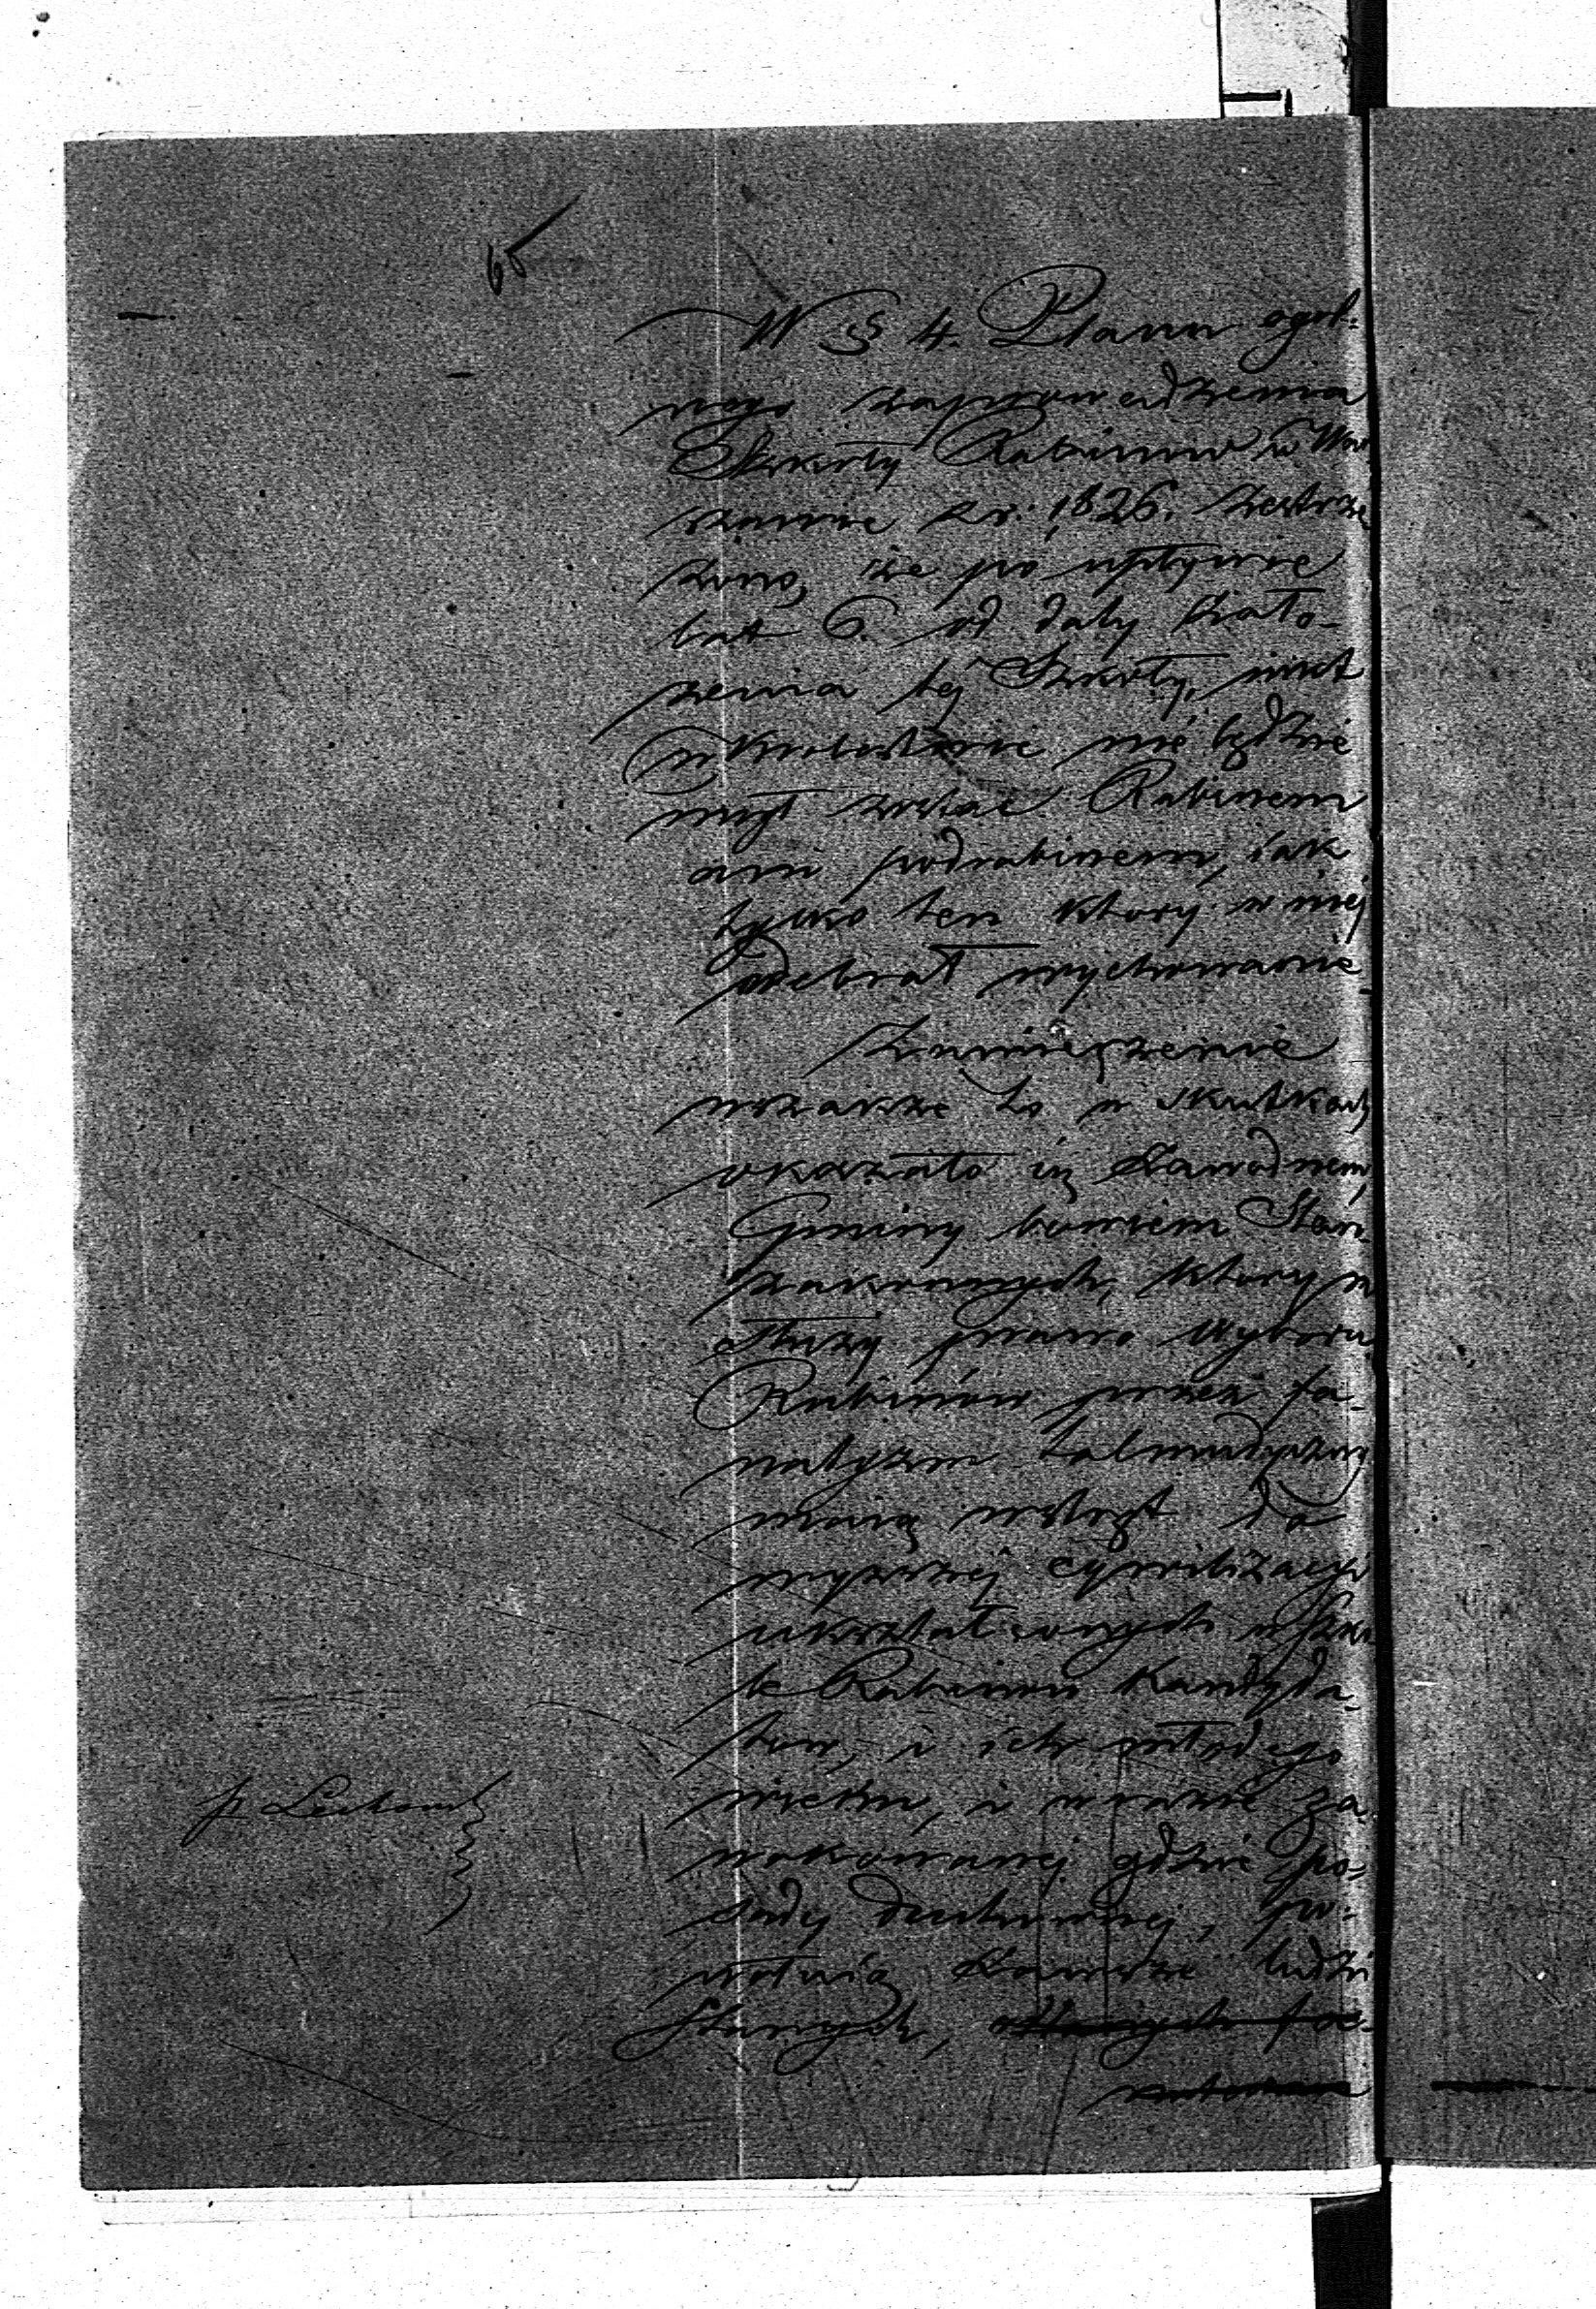 65
W § 4. Planu ogól-
nego zaprowadzenia
Szkoły Rabinów w War
szawie z r: 1826. zastrze
żono, że po upływie
lat 6. od daty zało-
żenia téj Szkoły, nikt
w Królestwie nie będzie
mógł zostać Rabinem
ani podrabinem, iak
tylko ten który w niej
odebrał wychowanie
Zamierzenie
wszakże to w skutkach
okazało się zawodnem,
Gminy bowiem Staro
zakonnych, którym
służy prawo wyboru
Rabinów przez fa-
natyzm talmudyczny
maią wstręt do
wyższej cywilizacyi
ukształconych w Szko
le Rabinów kandyda-
tów, i ich młodego
wieku, i w razie za
wakowanej gdzie po-
sady duchownej, po-
wołuią zawsze ludzi
Starych,